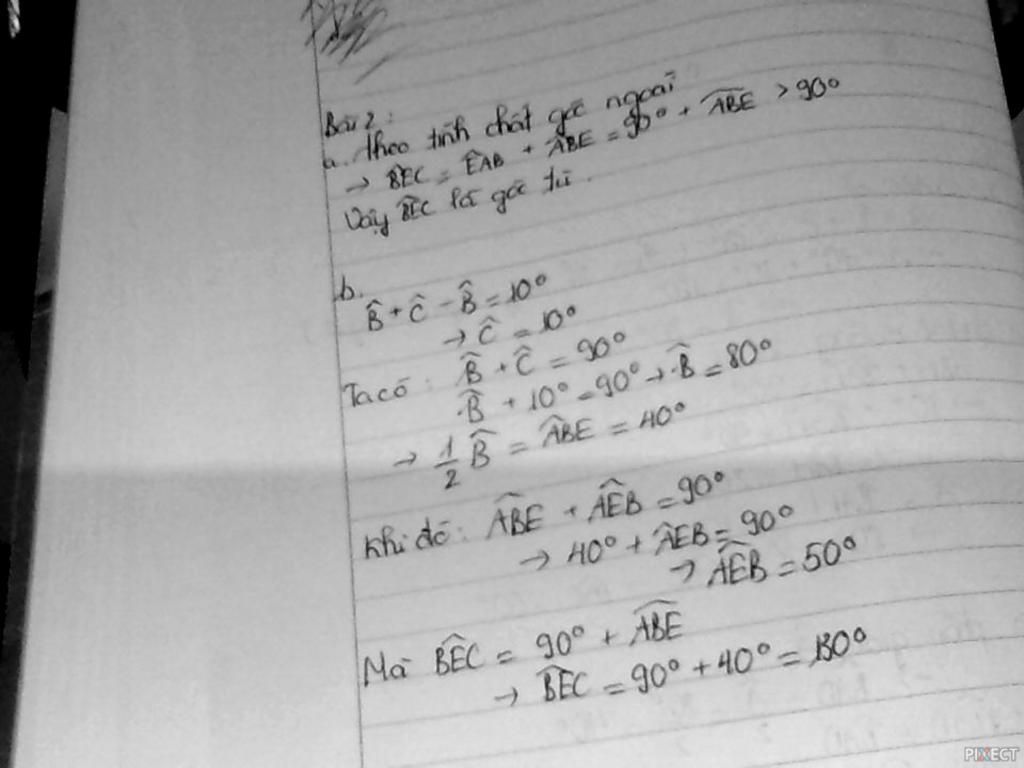 Bài 2:
a. Theo tính chất góc ngoài
→ BÊC = ÊAB + ÂBE = 90° + ÂBE > 90°
Vậy BÊC là góc tù.
b.
B̂ + Ĉ - B̂ = 10°
→ Ĉ = 10°
Ta có: B̂ + Ĉ = 90°
B̂ + 10° = 90° → B̂ = 80°
→ 1/2 B̂ = ÂBE = 40°
Khi đó: ÂBE + AÊB = 90°
→ 40° + AÊB = 90°
→ AÊB = 50°
Mà BÊC = 90° + ABE
→ BÊC = 90° + 40° = 130°
PIXECT